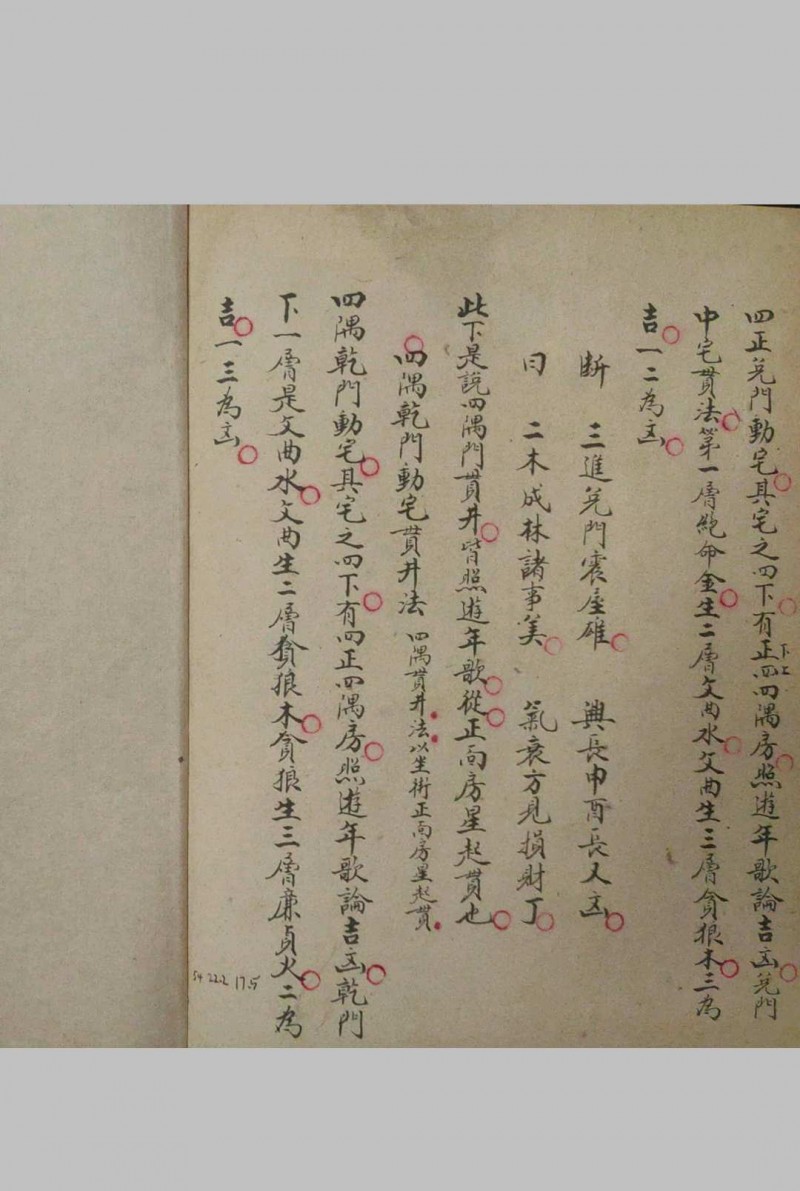 四正兌門動宅具宅之四下有正四四隅房照遊年歌論吉凶兌門
下上
中宅貫法第一層絕命金生二層文曲水文曲生三層貪狼木三為
吉一二為凶
斷 三進兌門震屋雄 興長申酉長又凶
曰 二木成林諸事美 氣衰方見損財丁
此下是說四隅門貫井皆照遊年歌從正向房星起貫也
四隅乾門動宅貫井法 四隅貫井法以坐術正向房星起貫
四隅乾門動宅具宅之四下有四正四隅房照遊年歌論吉凶乾門
下一層是文曲水文曲生二層貪狼木貪狼生三層廉貞火二為
吉一三為凶
54 222 17.5